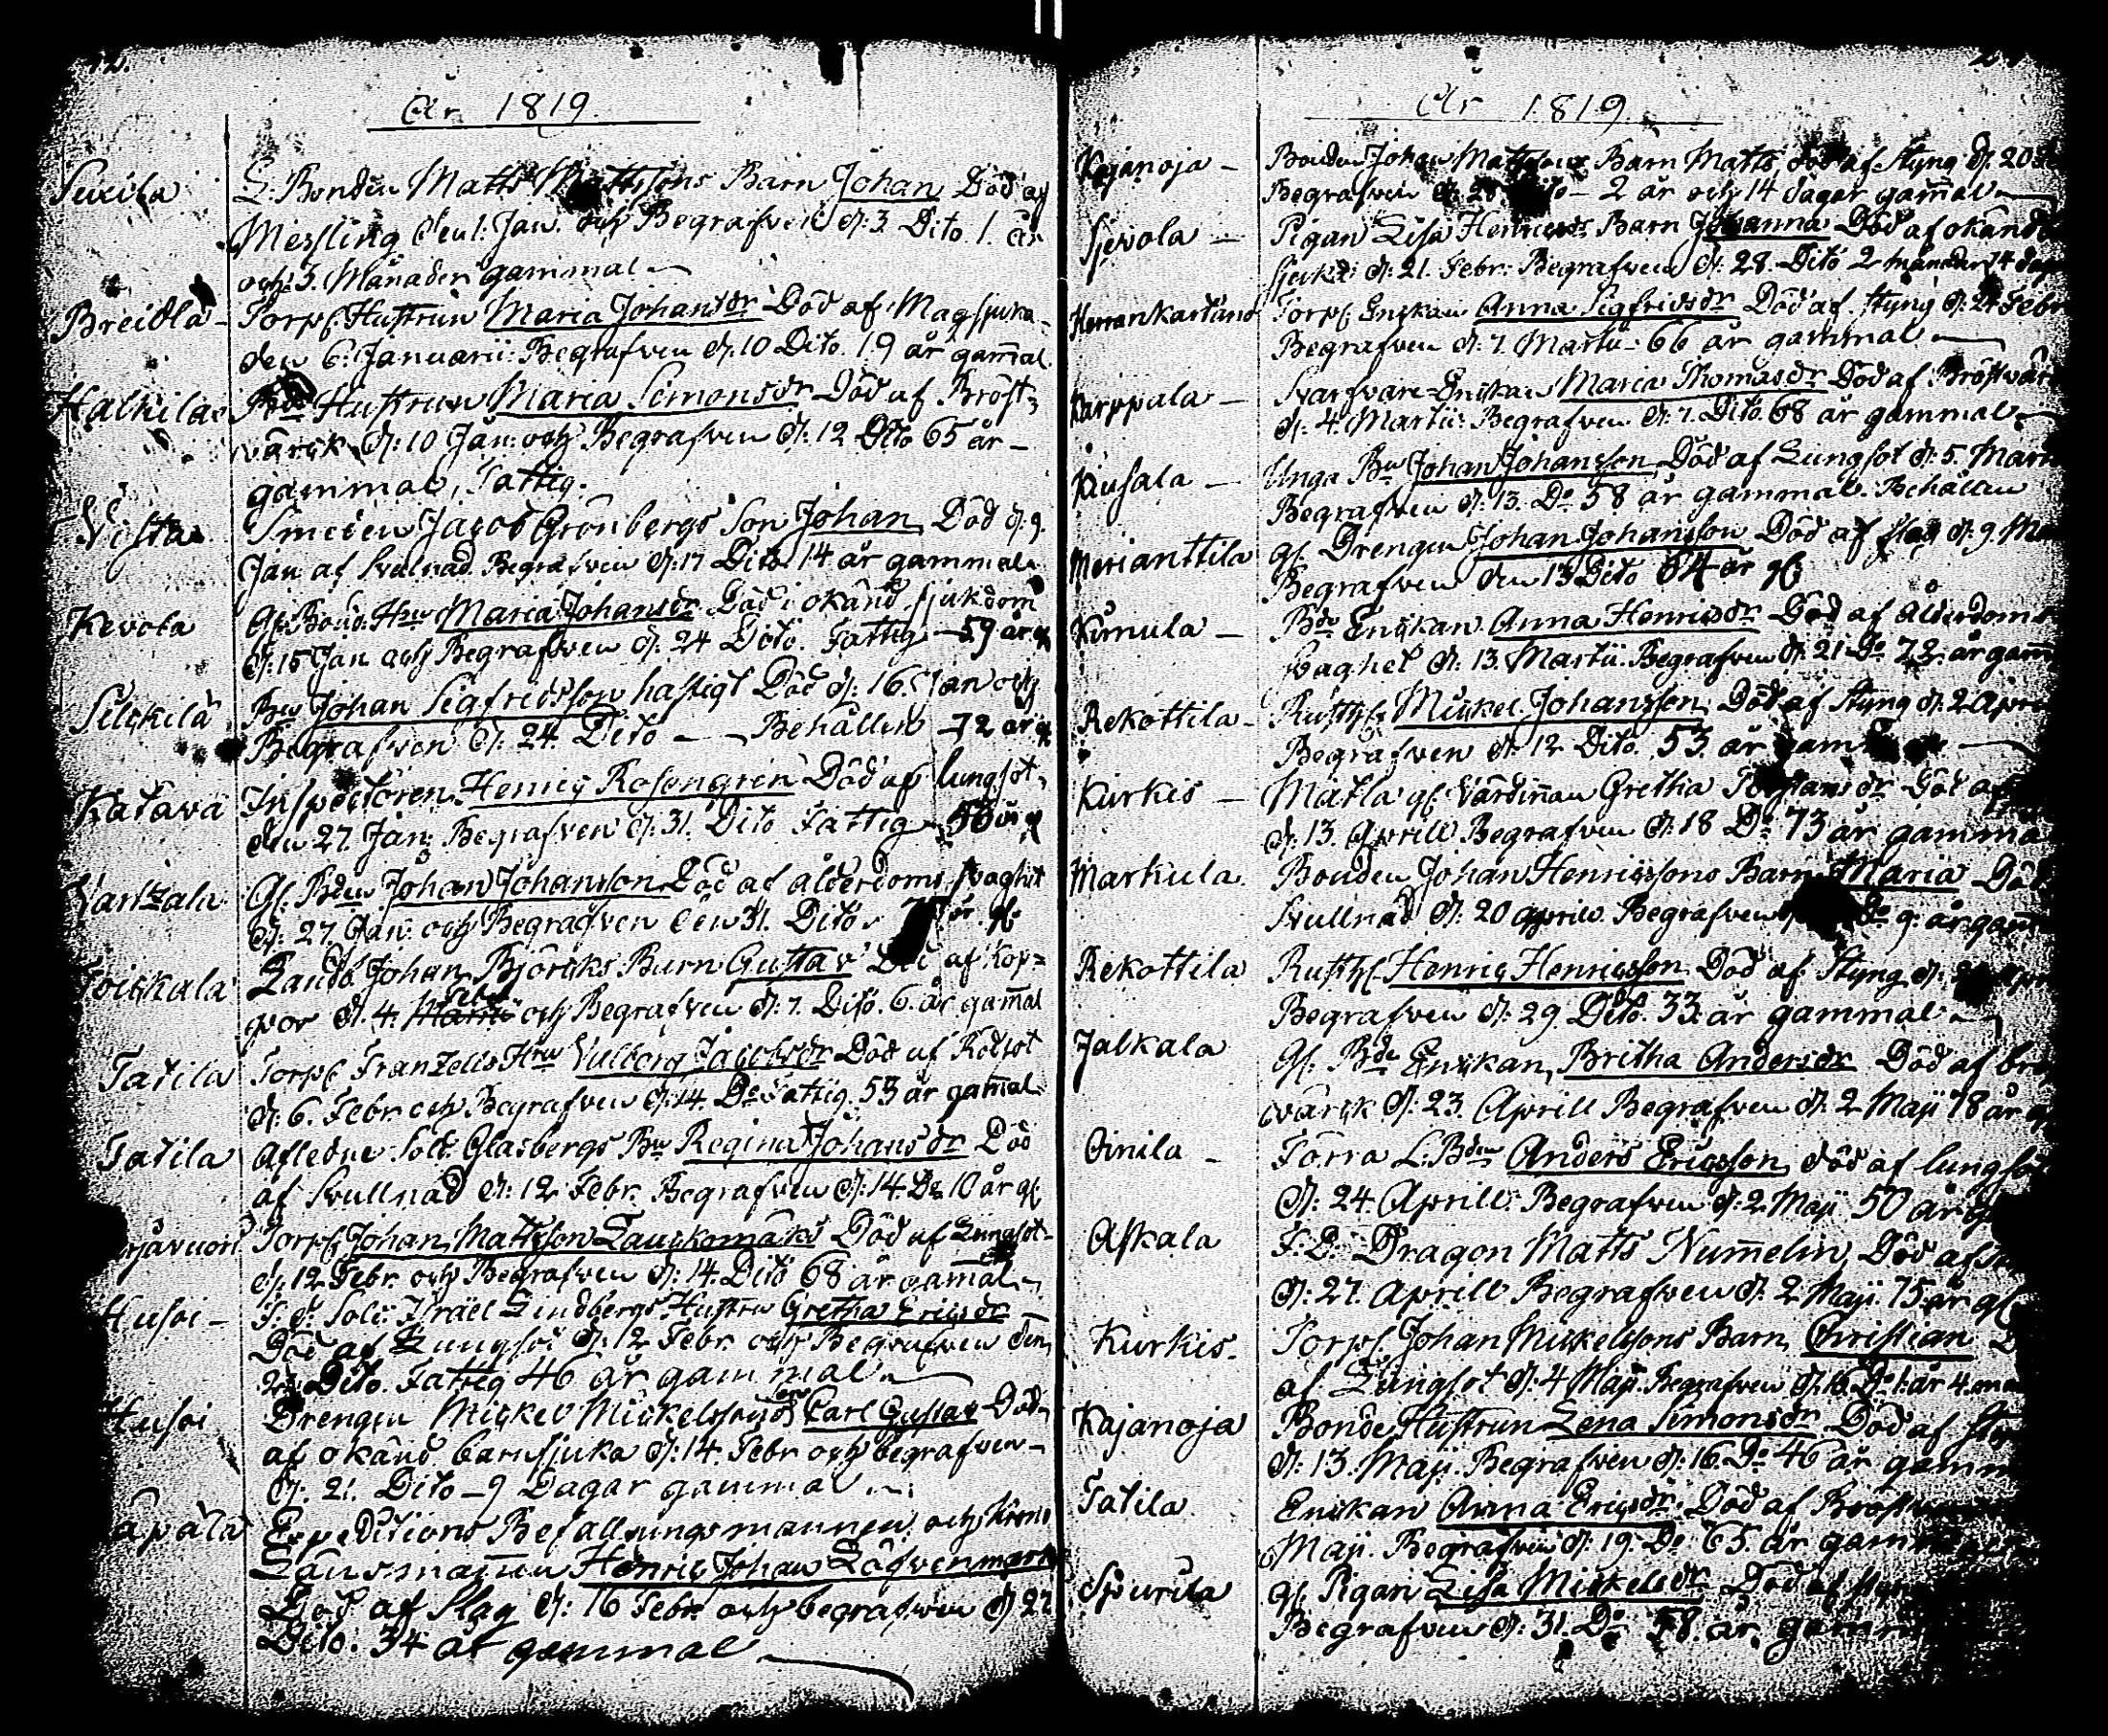 År 1819.
L. Bonden Matts Mattssons Barn Johan Död af
Messling den 1. Jan. och Begrafven d. 3 Dito 1. år
och 3. Månader gammal
Breidla - Torp. Hustrun Maria Johansdr Död af Magsjuka
den 6. Januarii. Begrafven d. 10 Dito. 19 år gamal
Hustrun Maria Simonsdr Död af Bröst-
värck d: 10 Jan: och Begrafven d: 12 Dito 65 år -
gammal, Fattig.
Vista Smeden Jacob Grönbergs Son Johan Död d. 9.
Jan af Svulnad Begrafven d: 17 Dito 14 år gammal
Kevola Gl. Bond. Hru Maria Johansdr Död i okänd sjukdom
d: 15 Jan och Begrafven d. 24 Dito. Fattig - 59 år gl
Johan Sigfridsson hastigt Död d. 16. Jan och
Begrafven d. 24. Dito - Behållen - 72 år gl
Katava Inspectoren Henric Rosengren Död af lungsot
den 27 Jan: Begrafven d: 31. Dito Fattig
Gl. Bden Johan Johansson Död af ålderdoms svaghet
d: 27. Jan: och Begrafven den 31. Dito år gl.
Johan Björcks Barn Gustav Död af Kop-
por d. 4. Febr och Begrafven d. 7. Dito. 6. år gamal
Tatila Torp. Franzells Hru Valborg Jacobsdr Död af Rödsot
d: 6. Febr. och Begrafven d: 14. Do Fattig. 53 år gamal.
Tatila Afledne Sold: Glasbergs Regina Johansdr Död
af Svullnad d: 12 Febr. Begrafven d: 14 Do 10 år gl
Torp. Johan Mattsson Död af Lungsot
d: 12 Febr. och Begrafven d: 14. Dito 68 år gamal
Husoi - F. d. Sold: Israël Lindbergs Hustru Gretha Ericsdr
Död af Lungsot d: 12 Febr. och Begrafven den
Dito. Fattig 46 år gammal
Husoi Drengen Mickel Mickelssons Son Carl Gustav Död
af okänd barnsjuka d: 14. Febr och begrafven -
d: 21. Dito - 9 Dagar gammal
Expeditions Befallningsmannen och Krono
Länsmannen Henric Johan Löfvenmark
Död af Slag d: 16 Febr och begrafven d 27
Dito: 34 år gammal
År 1819.
Kajanoja - Bonden Johan Mattssons Barn Matts, död af Styng d. 20
Begrafven d. 28 - 2 år och 14 dagar gammal
Pigan Lisa Henricsdr Barn Johanna Död af okänd
sjukd: d: 21. Febr: Begrafven d: 28. Dito 2 månader 14 dag
Herrankartano Torp. Enckan Anna Sigfridsdr Död af Styng d. 21 Febr
Begrafven d. 7. Martii - 66 år gammal
Karppala - Svarfvare Enckan Maria Thomasdr Död af Bröstvär
d. 4. Martii. Begrafven d. 7. Dito. 68 år gammal
Unga Bn Johan Johansson Död af Lungsot d: 5. Mar
Begrafven d: 13. Do 58 år gammal. Behållen
Merianttila gl. Drengen Johan Johansson Död af slag d. 9. Ma
Begrafven den 13 Dito 64 år gl.
Bde Enckan Anna Henricsdr Död af ålderdoms
svaghet d: 13. Martii. Begrafven d: 21 Do 72. år gam
Rekottila - Rusth. Mickel Johansson Död af Styng d: 2 Apri
Begrafven d: 12 Dito. 53 år
Kurkis - Matla gl. Värdinan Gretha Död af
d: 13. Aprill Begrafven d: 18 Do 73 år gamma
Markula. Bonden Johan Henricssons Barn Maria Död
Svullnad d: 20 Aprill. Begrafven Do 9. år gam
Rekottila Rusth. Henric Henricsson Död af Styng d:
Begrafven d: 29. Dito. 33. år gammal
Jalkala Gl. Bde Enckan, Britha Andersdr Död af brö
värck d: 23. Aprill Begrafven d: 2 Maji 78 år
Oinila - Förra L: Bden Anders Ericsson död af lungsot
d: 24. Aprill. Begrafven d. 2 Maji 50 år
Askala F: D. Dragon Matts Numelin Död af
d: 27. Aprill Begrafven d. 2 Maji. 75 år gl
Kurkis. Torp. Johan Mickelssons Barn, Christian
af Lungsot d: 4 Maji. Begrafven d: 16. Do 1. år 4. ma
Kajanoja Bonde Hustrun Lena Simonsdr Död af
d: 13. Maji. Begrafven d: 16. Do 46 år gamm
Tatila Enckan Anna Ericsdr. Död af Bröst
Maji. Begrafven d: 19. Do 65. år gam
Spurila gl. Pigan Lisa Mickelsdr Död af
Begrafven d: 31. Do 58. år, gam